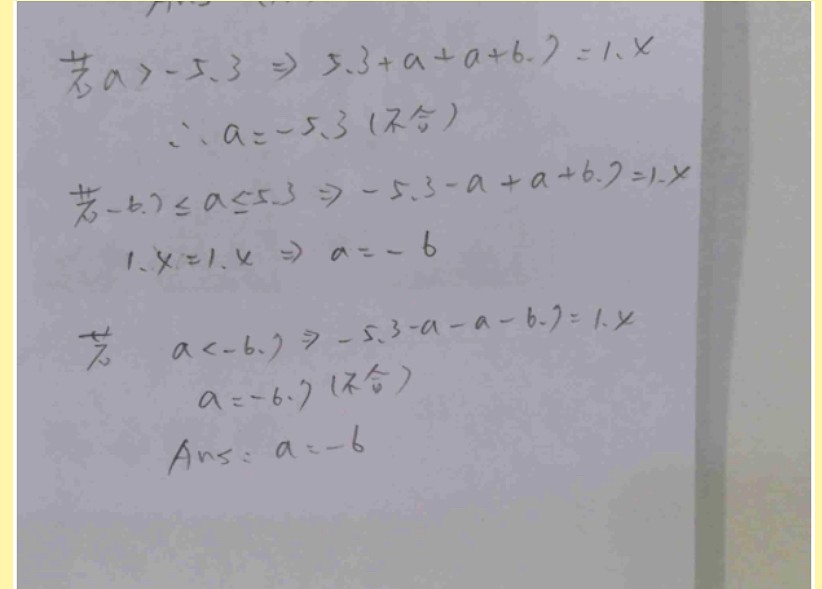 若a>-5.3 ⇒ 5.3+a+a+6.7=1.4
∴ a=-5.3 (不合)
若-6.7≤a≤5.3 ⇒ -5.3-a+a+6.7=1.4
1.4=1.4 ⇒ a=-6
若 a<-6.7 ⇒ -5.3-a-a-6.7=1.4
a=-6.7 (不合)
Ans: a=-6